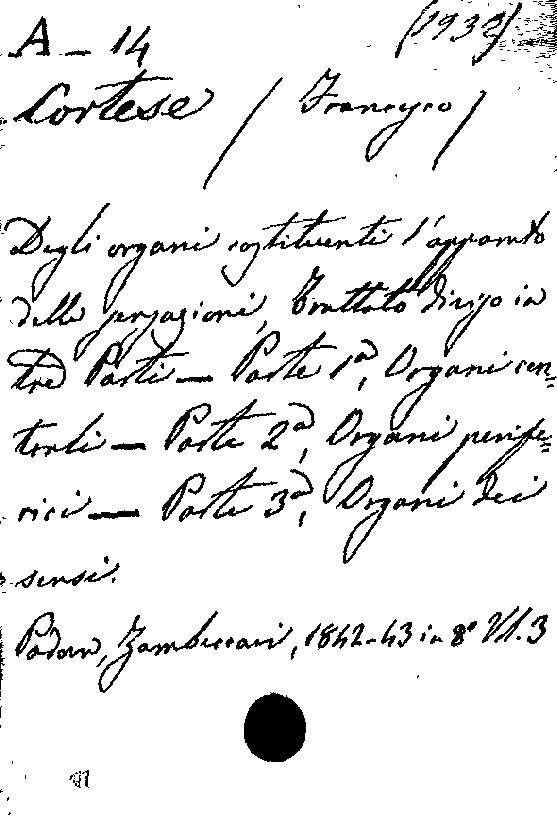 A - 14 (1933)
Cortese / Francesco /
Degli organi costituenti l'apparato
delle sensazioni, Trattato diviso in
tre Parti — Parte 1a, Organi cen=
trali — Parte 2a, Organi perife=
rici — Parte 3a, Organi dei
sensi.
Padova, Zambeccari, 1842-43 in 8° Vol. 3